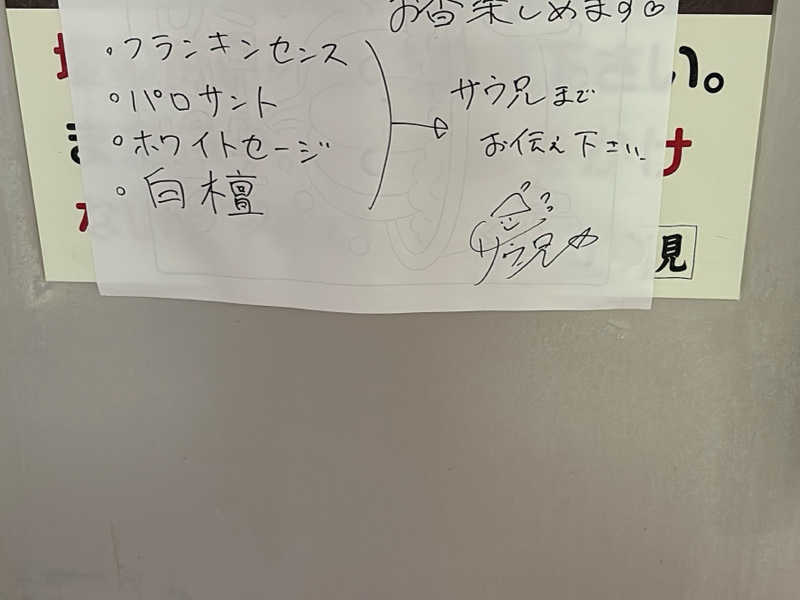 お香楽しめます♡
・フランキンセンス
・パロサント
・ホワイトセージ
・白檀
サウ兄まで
お伝え下さい
サウ兄や
い。
け
見